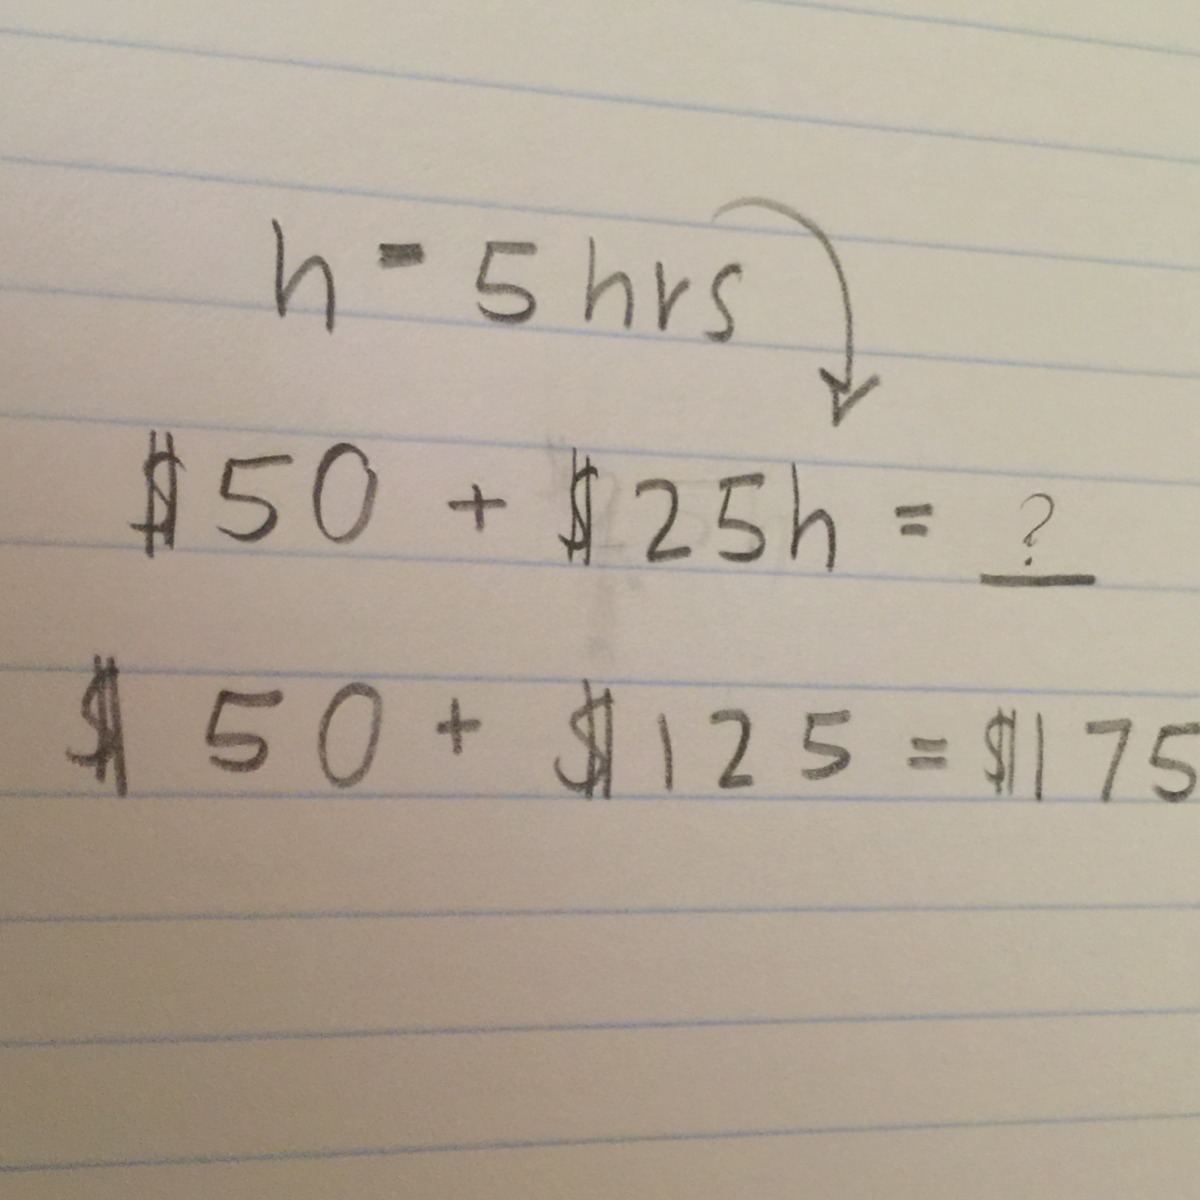 h = 5 hrs
$50 + $25h = ?
$50 + $125 = $175